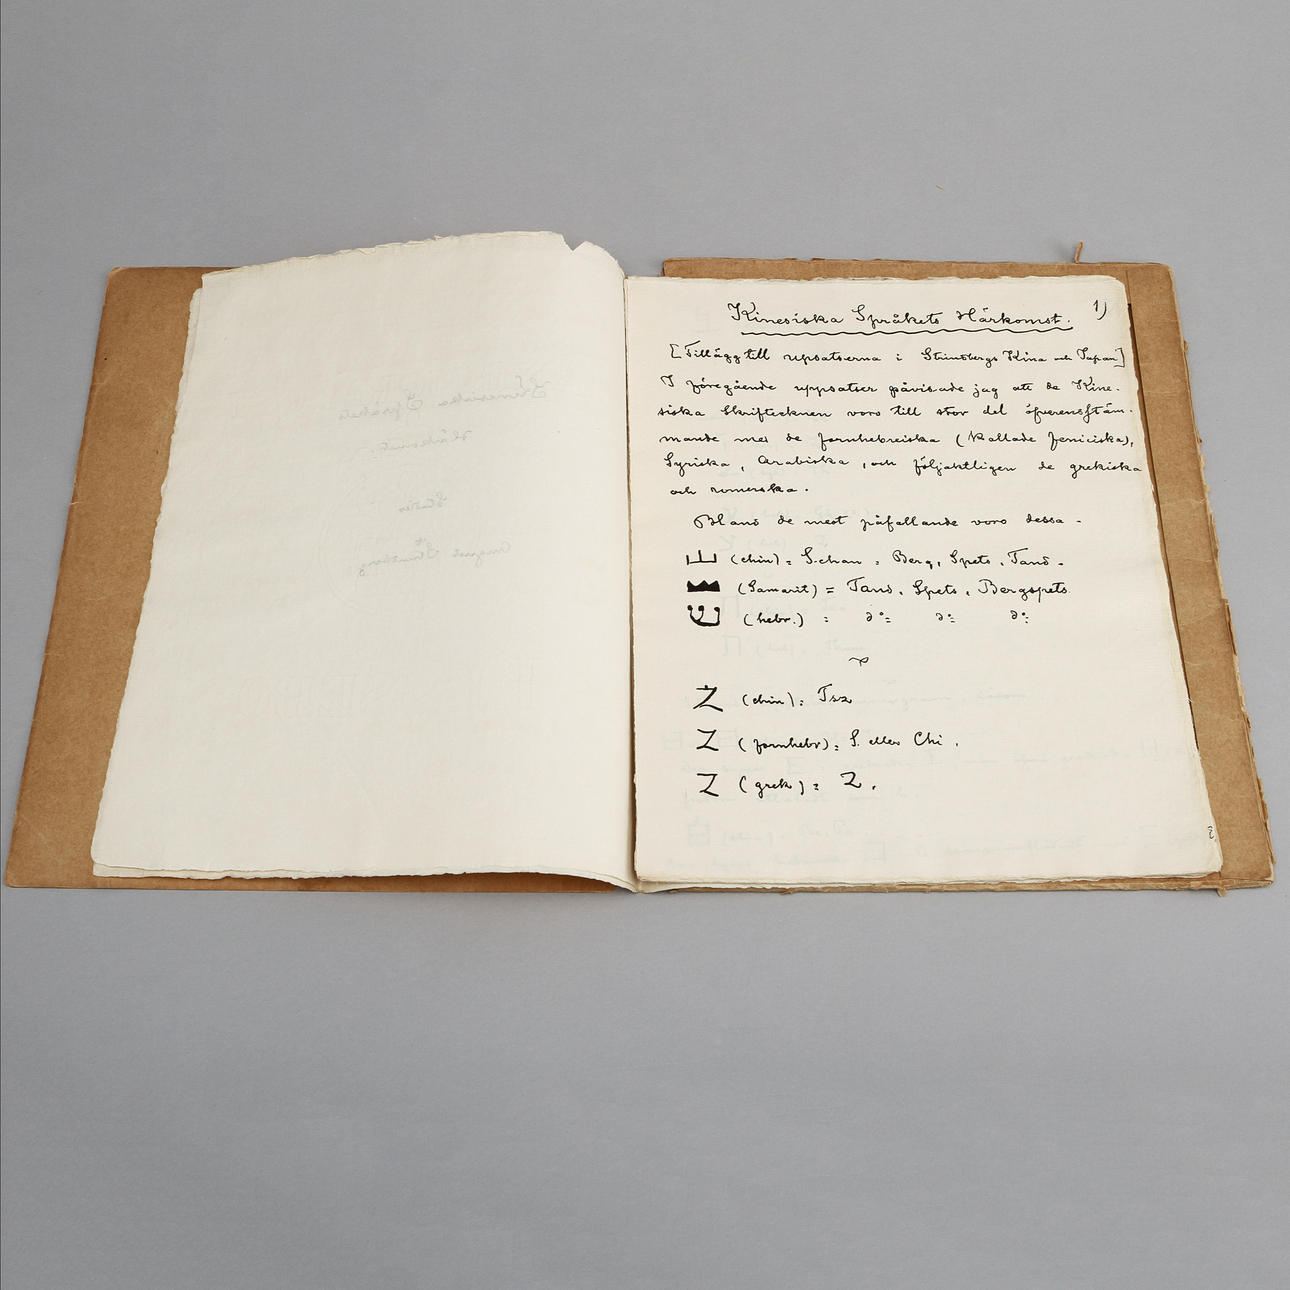 Kinesiska Språkets Härkomst. 1)
[Tillägg till uppsatserna i Strindbergs Kina och Japan]
I föregående uppsatser påvisade jag att de Kine-
siska Skrifttecknen voro till stor del öfverensstäm-
mande med de fornhebreiska (kallade feniciska),
Syriska, Arabiska, och följaktligen de grekiska
och romerska.
Bland de mest påfallande voro dessa -
山 (chin) = Schan = Berg, Spets, Tand.
(Samarit) = Tand, Spets, Bergspets
ש (hebr.) = do= do= do=
Z (chin) = Tsz
Z (fornhebr) = S. eller Chi.
Z (grek) = Z.